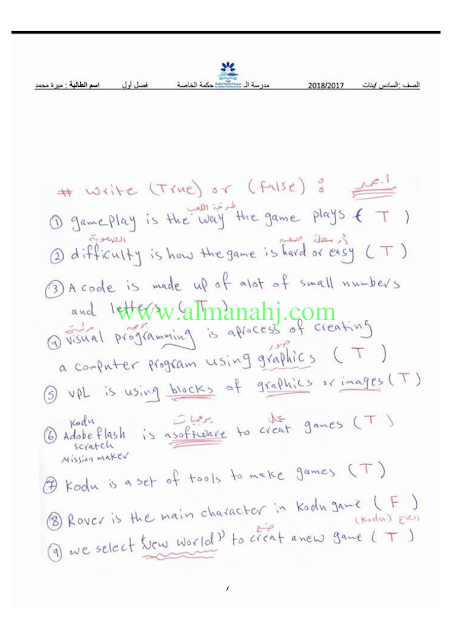 الصف :السادس /بنات 2018/2017 مدرسة الـ حكمة الخاصة فصل أول اسم الطالبة : ميرة محمد
# write (True) or (False) :
طريقة اللعب
① gameplay is the way the game plays ( T )
الصعوبة صعبة أو سهلة
② difficulty is how the game is hard or easy ( T )
③ A code is made up of alot of small numbers
and letters ( T )
www.almanahj.com
مرئية برمجة
④ visual programming is aprocess of creating
صور
a computer program using graphics ( T )
⑤ VPL is using blocks of graphics or images ( T )
Kodu برمجيات
⑥ Adobe flash is asoftware to creat games ( T )
scratch
Mission maker
⑦ Kodu is a set of tools to make games ( T )
⑧ Rover is the main character in Kodu game ( F )
(Kodu)
⑨ we select "New world" to creat anew game ( T )